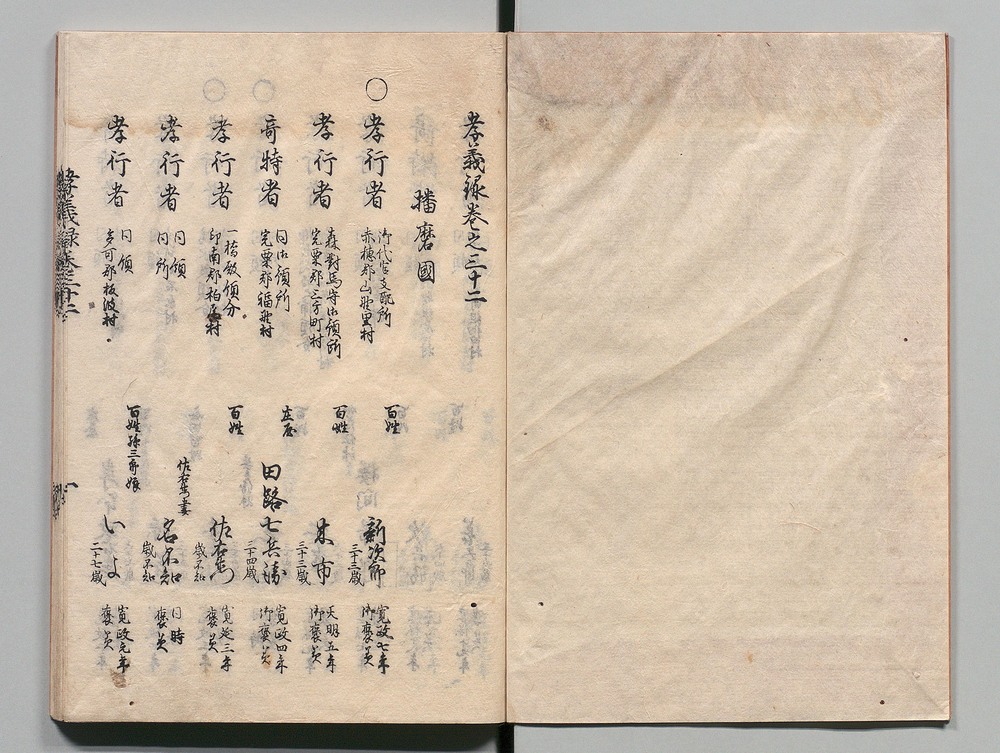 孝義録巻之三十二
播磨國
○孝行者 御代官支配所 赤穂郡山野里村 百姓 新次郎 三十三歳 寛政七年 御褒美
孝行者 森對馬守御領所 宍粟郡三方町村 百姓 米市 三十三歳 天明五年 御褒美
○奇特者 同御領所 宍粟郡福野村 庄屋 田路七兵衛 三十四歳 寛政四年 御褒美
○孝行者 一橋殿領分 印南郡柏尾村 百姓 佐右衛門 歳不知 寛延三年 褒美
孝行者 同領 同所 佐右衛門妻 名不知 歳不知 同時 褒美
孝行者 同領 多可郡板波村 百姓孫三郎娘 いよ 二十七歳 寛政元年 褒美
孝義録巻三十二 一